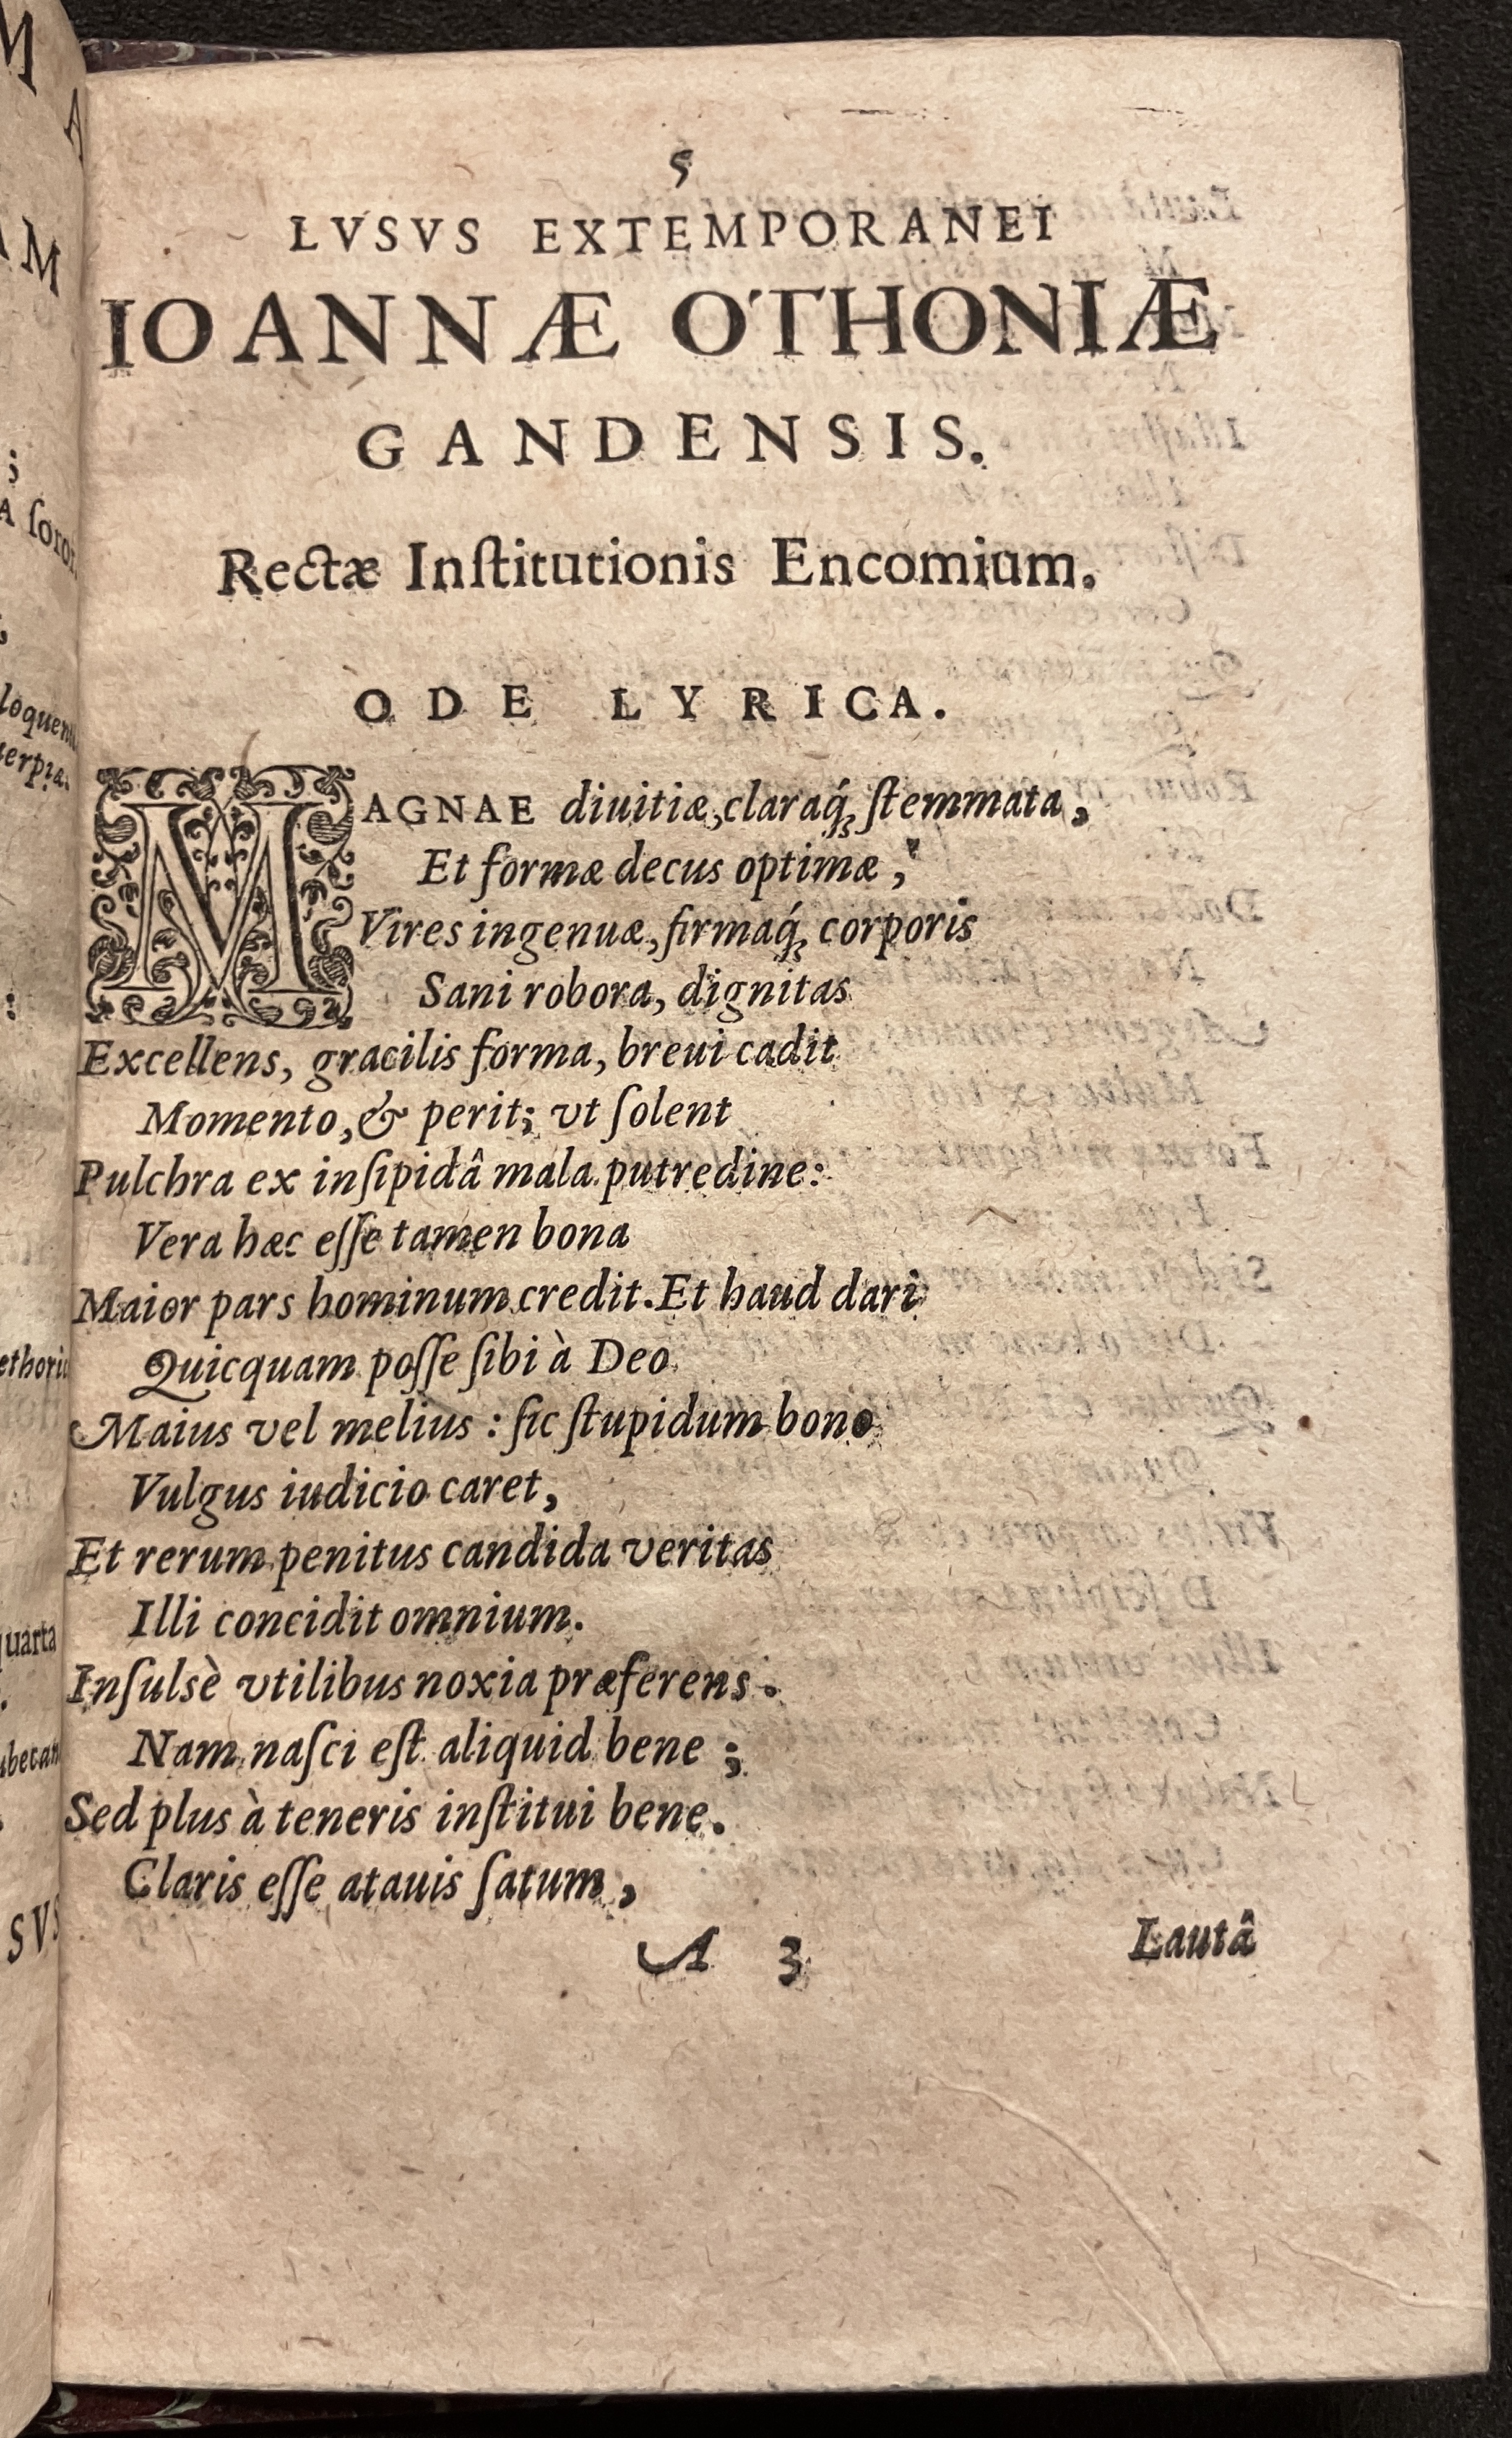 5
LVSVS EXTEMPORANEI
IOANNÆ OTHONIÆ
GANDENSIS.
Rectæ Inſtitutionis Encomium.
ODE LYRICA.
MAGNAE diuitiæ, claraq́; ſtemmata,
Et formæ decus optimæ,
Vires ingenuæ, firmaq́; corporis
Sani robora, dignitas
Excellens, gracilis forma, breui cadit
Momento, & perit; vt ſolent
Pulchra ex inſipidâ mala putredine:
Vera hæc eſſe tamen bona
Maior pars hominum credit. Et haud dari
Quicquam poſſe ſibi à Deo
Maius vel melius: ſic ſtupidum bono
Vulgus iudicio caret,
Et rerum penitus candida veritas
Illi concidit omnium.
Inſulsè vtilibus noxia præferens.
Nam naſci eſt aliquid bene;
Sed plus à teneris inſtitui bene.
Claris eſſe atauis ſatum,
A 3 Lautâ